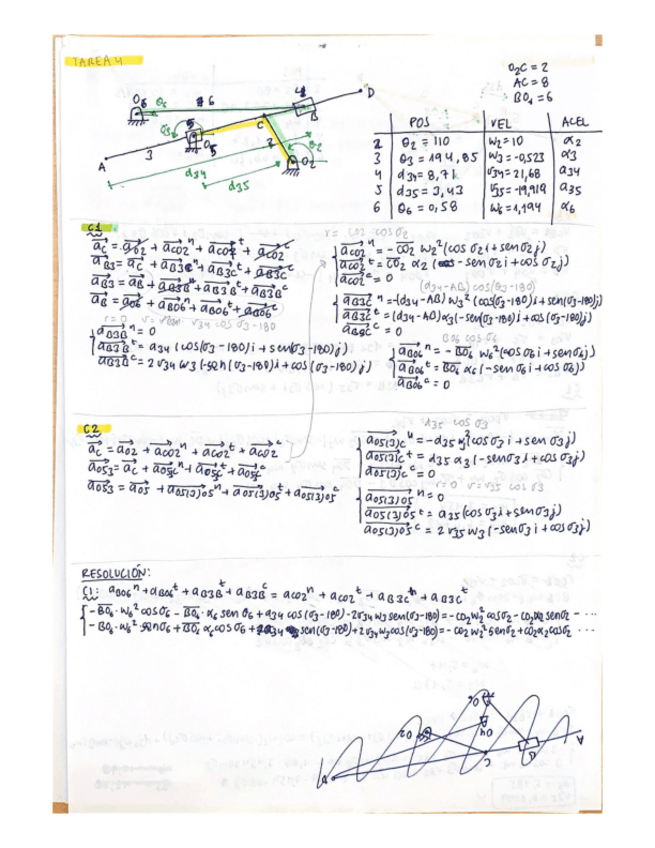 TAREA 4
O₂C = 2
AC = 8
BO₆ = 6
POS VEL ACEL
2 θ₂ = 110 w₂ = 10 α₂
3 θ₃ = 194,85 w₃ = -0,523 α₃
4 d34 = 8,71 v34 = 21,68 a34
5 d35 = 3,43 v35 = -19,919 a35
6 θ₆ = 0,58 w₆ = 1,194 α₆
A 3 5 O₅ C B D O₂ O₆ θ₆ 6 θ₃ θ₂ 2
d34
d35
C1
r = CO2 cos σ₂
ac = ao2 + aco2ⁿ + aco2ᵗ + aco2ᶜ
aB3 = ac + aB3Cⁿ + aB3Cᵗ + aB3Cᶜ
aB3 = aB + aB3Bⁿ + aB3Bᵗ + aB3Bᶜ
aB = ao6 + aBO6ⁿ + aBO6ᵗ + aBO6ᶜ
aB3Bⁿ = 0
aB3Bᵗ = a34 (cos(σ3-180)i + sen(σ3-180)j)
aB3Bᶜ = 2 v34 w3 (-sen(σ3-180)i + cos(σ3-180)j)
aco2ⁿ = -CO2 w₂² (cos σ₂ i + sen σ₂ j)
aco2ᵗ = CO2 α₂ (-sen σ₂ i + cos σ₂ j)
aco2ᶜ = 0
(d34-AB) cos(σ3-180)
aB3Cⁿ = -(d34-AB) w3² (cos(σ3-180)i + sen(σ3-180)j)
aB3Cᵗ = (d34-AB) α3 (-sen(σ3-180)i + cos(σ3-180)j)
aB3Cᶜ = 0
BO6 cos σ6
aBO6ⁿ = -BO6 w6² (cos σ6 i + sen σ6 j)
aBO6ᵗ = BO6 α6 (-sen σ6 i + cos σ6 j)
aBO6ᶜ = 0
C2
ac = ao2 + aco2ⁿ + aco2ᵗ + aco2ᶜ
ao53 = ac + ao53cⁿ + ao53cᵗ + ao53cᶜ
ao53 = ao5 + ao5(3)o5ⁿ + ao5(3)o5ᵗ + ao5(3)o5ᶜ
-d35 cos σ3
ao5(3)cⁿ = -d35 w3² (cos σ3 i + sen σ3 j)
ao5(3)cᵗ = d35 α3 (-sen σ3 i + cos σ3 j)
ao5(3)c ᶜ = 0
r = 0 v = v35 cos σ3
ao5(3)o5ⁿ = 0
ao5(3)o5ᵗ = a35 (cos σ3 i + sen σ3 j)
ao5(3)o5ᶜ = 2 v35 w3 (-sen σ3 i + cos σ3 j)
RESOLUCIÓN:
C1: aBO6ⁿ + aBO6ᵗ + aB3Bᵗ + aB3Bᶜ = aco2ⁿ + aco2ᵗ + aB3Cⁿ + aB3Cᵗ
-BO6·w6² cos σ6 - BO6·α6 sen σ6 + a34 cos(σ3-180) - 2v34 w3 sen(σ3-180) = -CO2 w2² cos σ2 - CO2 α2 sen σ2 - ...
-BO6·w6²·sen σ6 + BO6 α6 cos σ6 + a34 sen(σ3-180) + 2v34 w3 cos(σ3-180) = -CO2 w2² sen σ2 + CO2 α2 cos σ2 ...